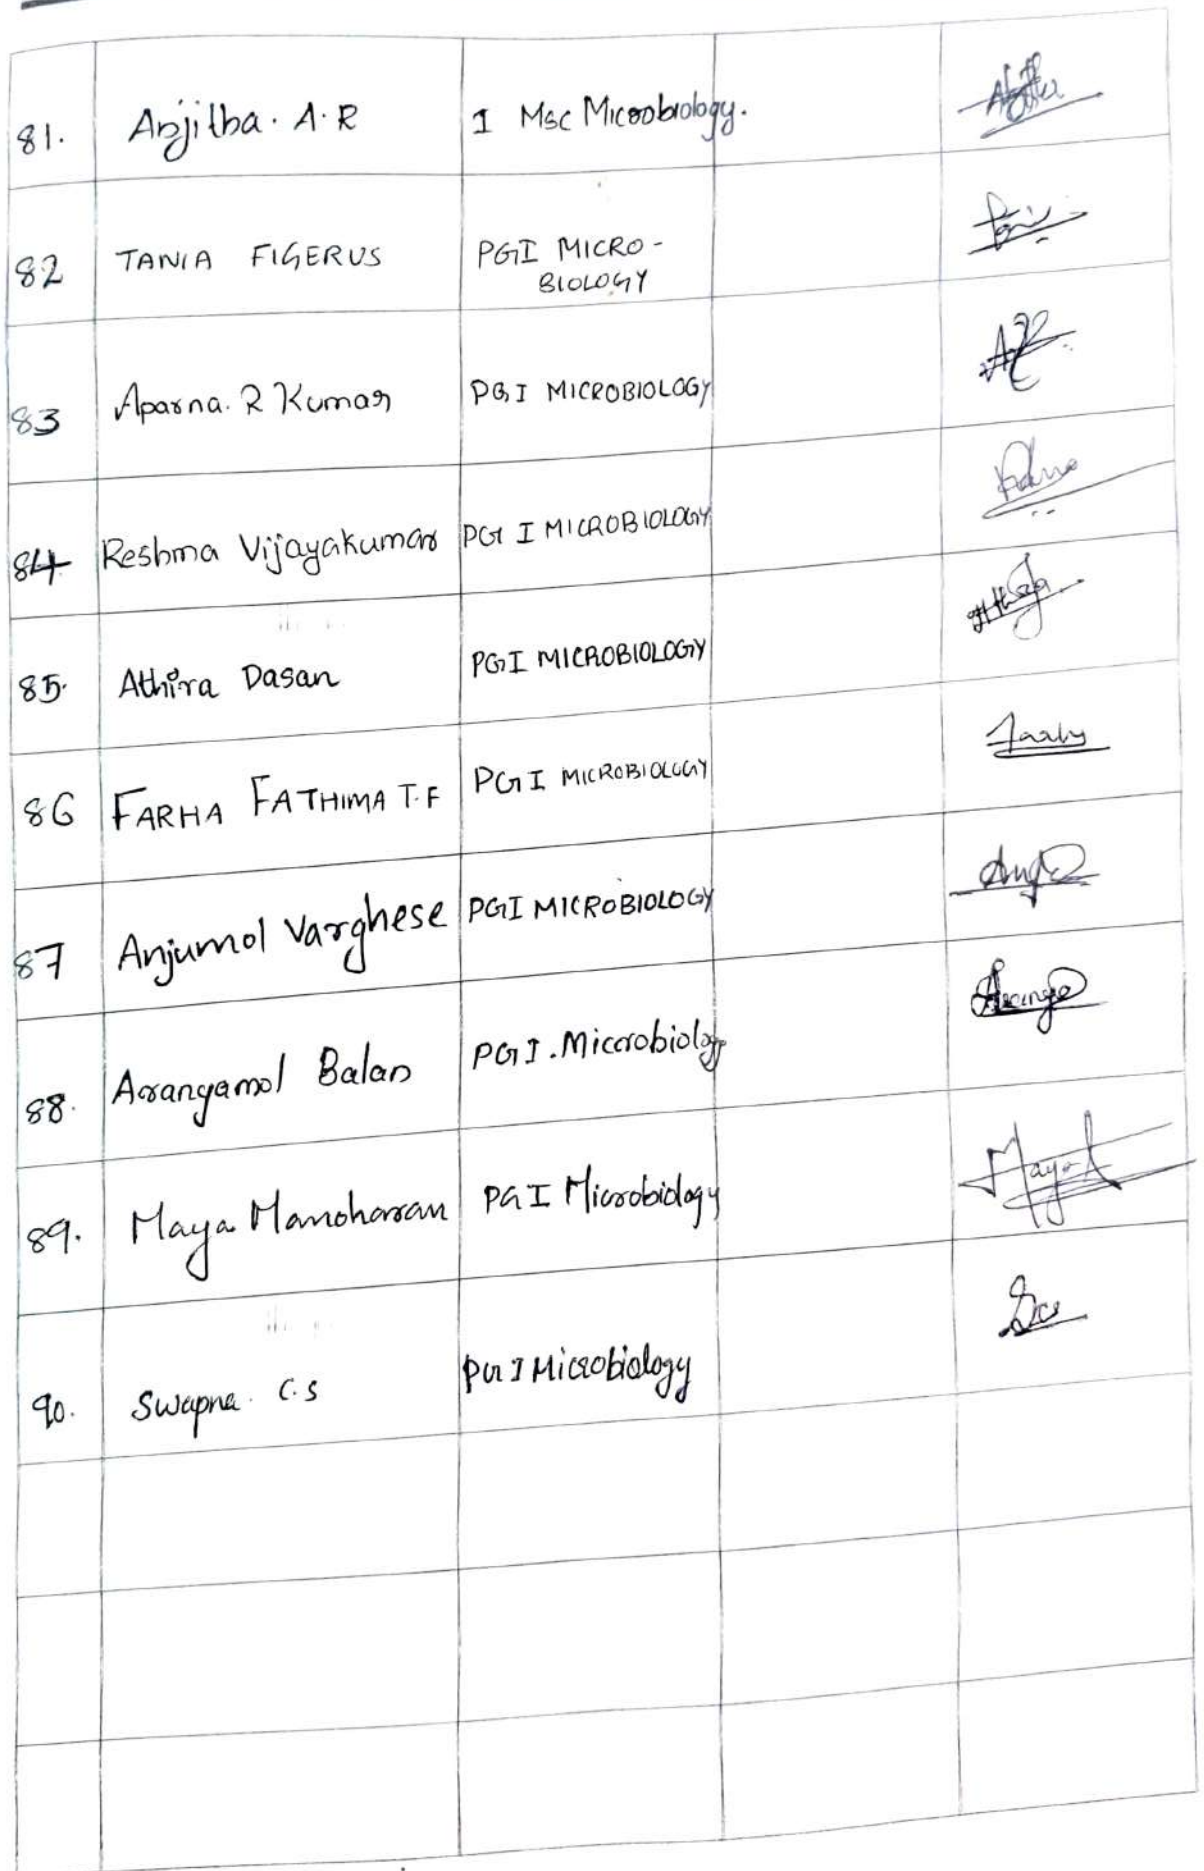 81. Anjitha. A. R I Msc Microbiology.
82 TANIA FIGERUS PGI MICRO-
BIOLOGY
83 Aparna. R Kumar PG I MICROBIOLOGY
84 Reshma Vijayakumar PG I MICROBIOLOGY
85. Athira Dasan PGI MICROBIOLOGY
86 FARHA FATHIMA T.F PG I MICROBIOLOGY
87 Anjumol Varghese PGI MICROBIOLOGY
88. Aranyamol Balan PG I. Microbiology
89. Maya Manoharan PG I Microbiology Maya
90. Swapna. C.S PG I Microbiology